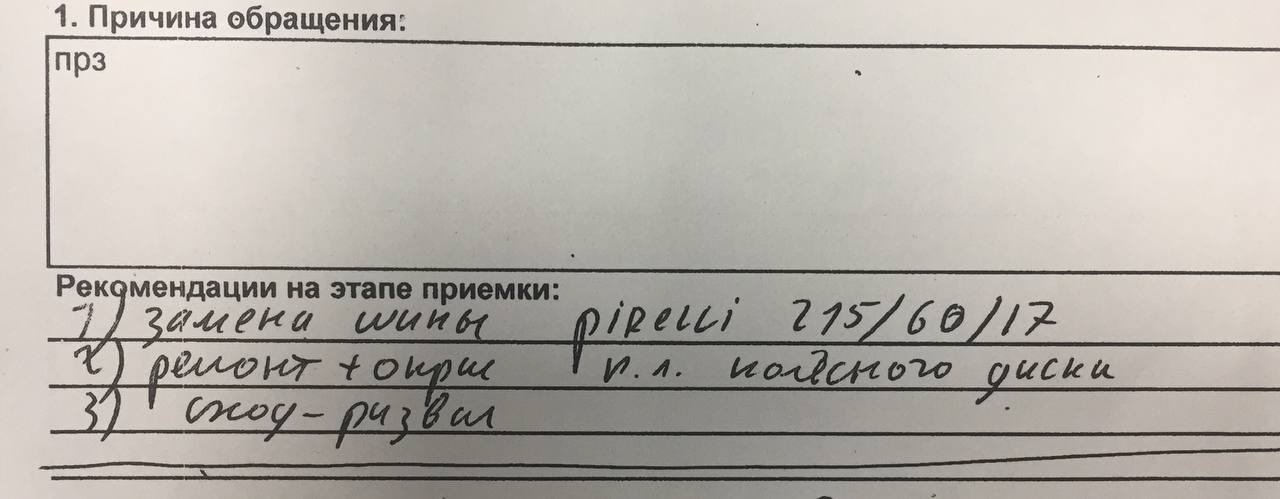 1. Причина обращения:
прз
Рекомендации на этапе приемки:
1) замена шины pirelli 215/60/17
2) ремонт + окрас п.л. колесного диска
3) сход-развал